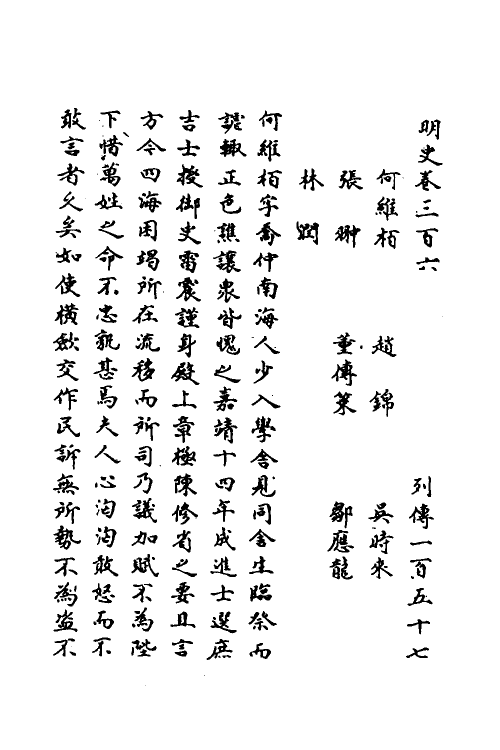 明史卷三百六　列傳一百五十七
何維栢　趙錦　吳時來
張翀　董傳策　鄒應龍
林潤
何維栢字喬仲南海人少入學舍見同舍生臨祭而
謔輒正色譙讓衆皆愧之嘉靖十四年成進士選庶
吉士授御史雷震謹身殿上章極陳修省之要且言
方今四海困竭所在流移而所司乃議加賦不為陛
下惜萬姓之命不忠孰甚焉夫人心洶洶敢怒而不
敢言者久矣如使橫斂交作民訴無所勢不為盗不